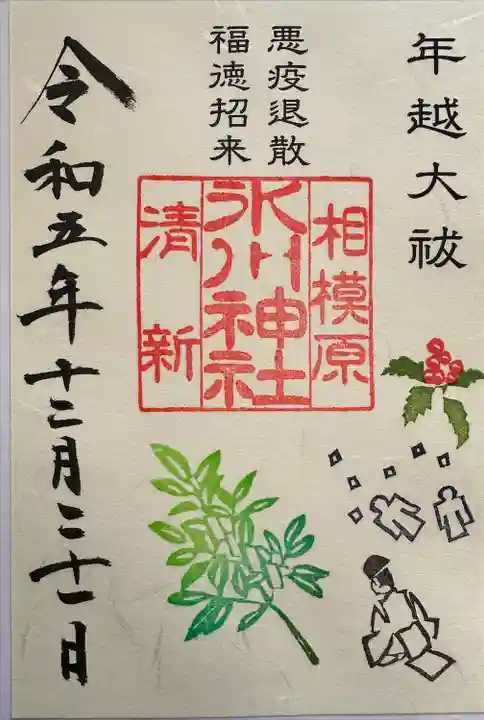 年越大祓
悪疫退散
福徳招来
相模原
氷川神社
清新
令和五年十二月二十一日